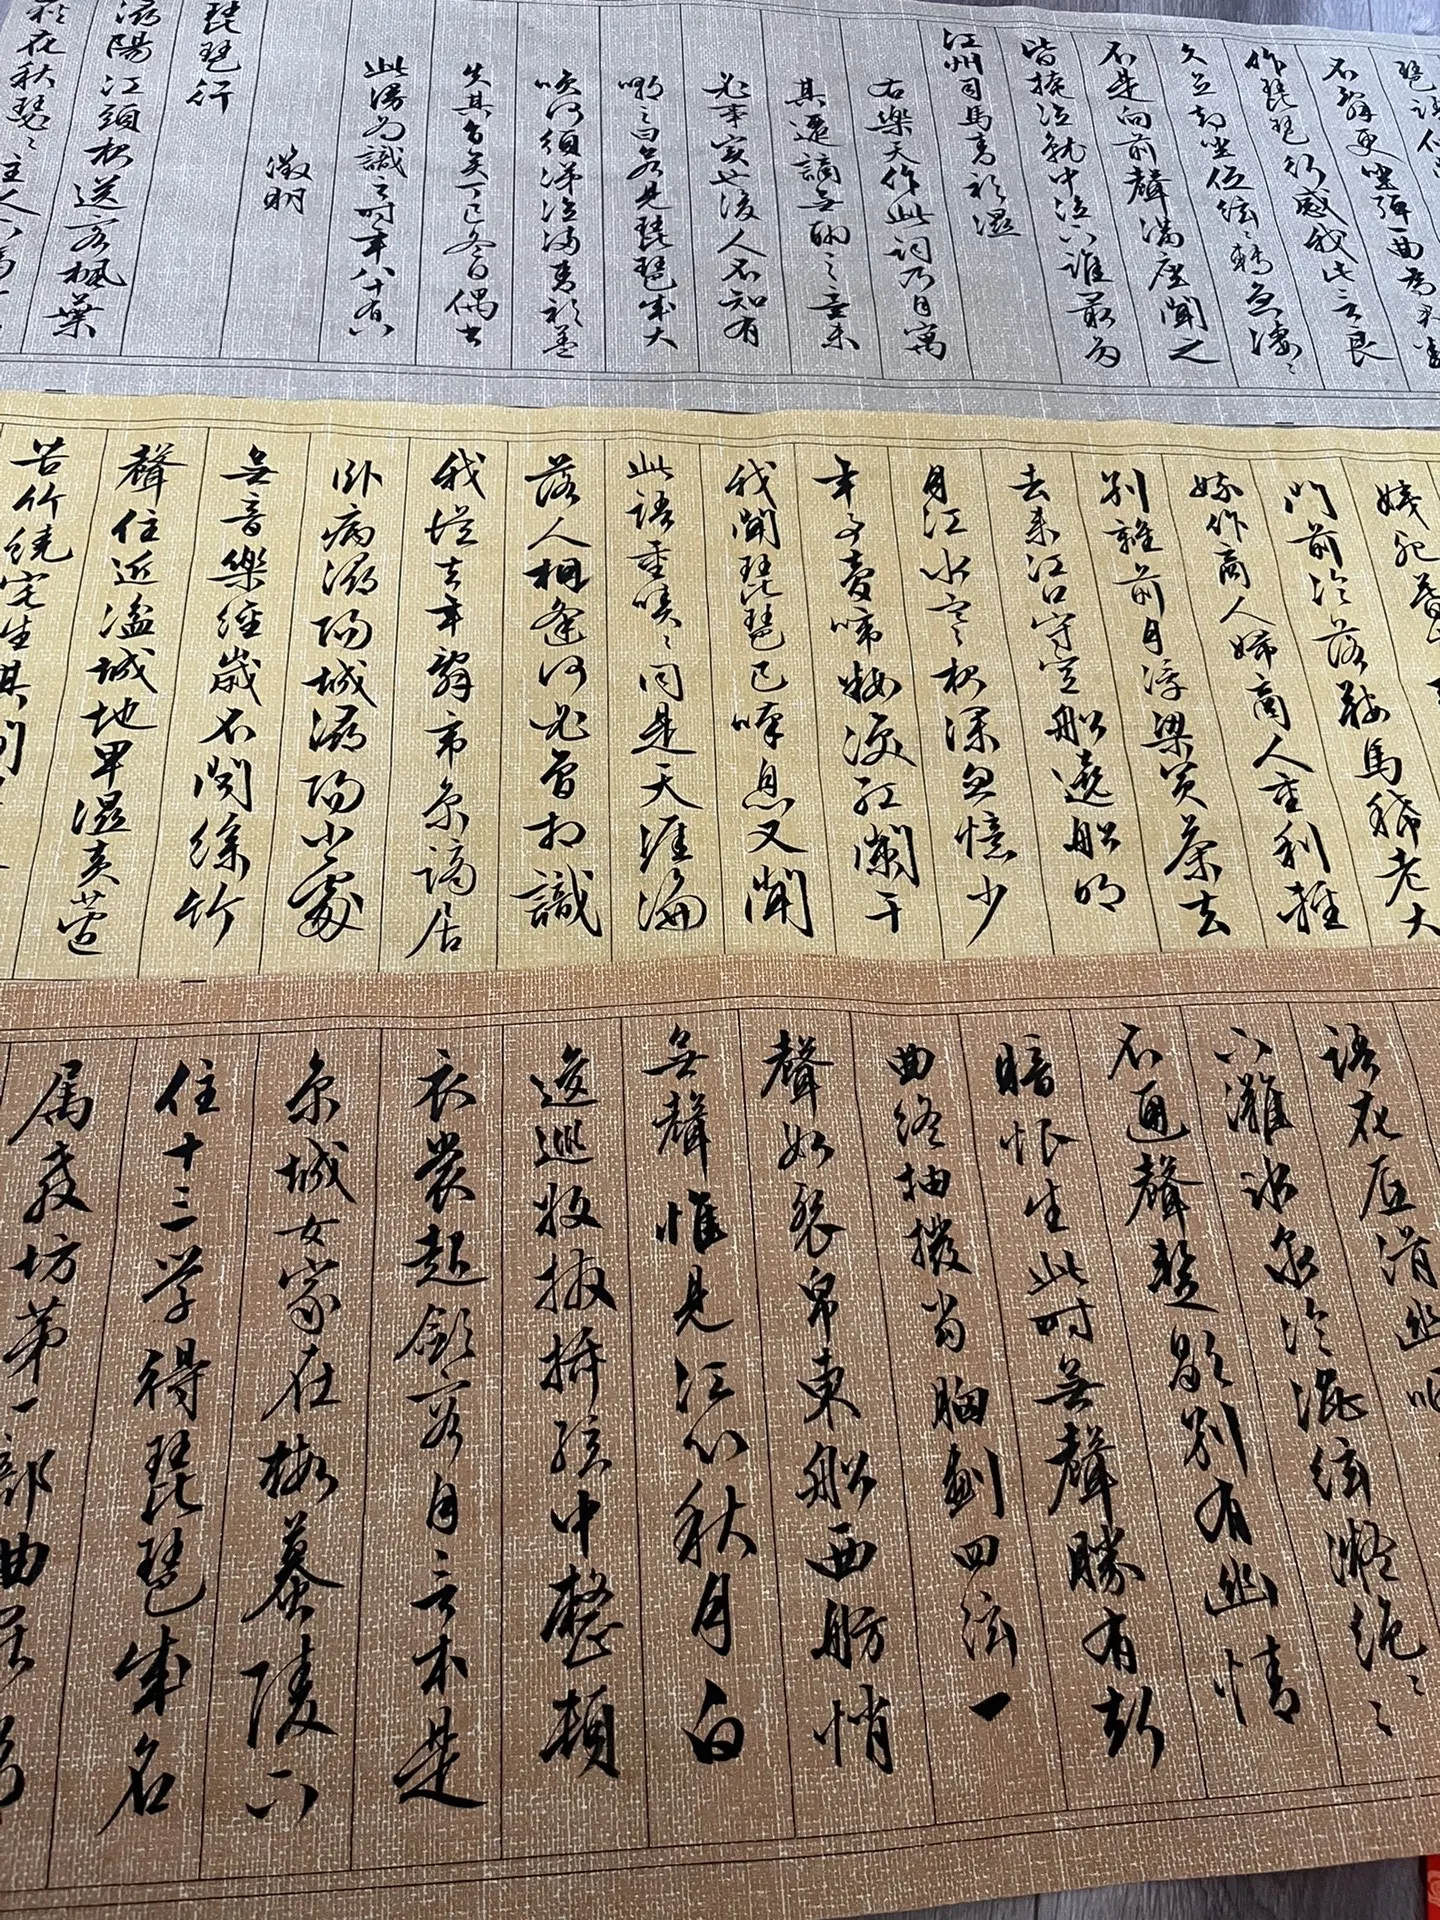 琶語似
不辭更坐彈曲為君翻
作琵琶行感我此言良
久立却坐促絃絃轉急淒淒
不是向前聲滿座聞之
皆掩泣就中泣下誰最多
江州司馬青衫濕
右樂天作此詞乃自寓
其遷謫無聊之意未
必事實也後人不知有
嘲之曰若見琵琶成大
咲何須涕泣滿青衫蓋
失其旨矣丁巳冬日偶書
此漫為識之時年八十有八
徵明
琵琶行
潯陽江頭夜送客楓葉
荻花秋瑟瑟主人下馬
姨死暮
門前冷落鞍馬稀老大
嫁作商人婦商人重利輕
別離前月浮梁買茶去
去來江口守空船遶船明
月江水寒夜深忽憶少
年事夢啼粧淚紅闌干
我聞琵琶已嘆息又聞
此語重唧唧同是天涯淪
落人相逢何必曾相識
我從去年辭帝京謫居
卧病潯陽城潯陽小處
無音樂終歲不聞絲竹
聲住近湓城地卑濕黃蘆
苦竹繞宅生其間
語花底滑幽咽
下灘水泉冷澁絃凝絕
不通聲暫歇別有幽情
暗恨生此時無聲勝有
曲終抽撥當胸劃四絃一
聲如裂帛東船西舫悄
無聲惟見江心秋月白
逡巡收撥插絃中整頓
衣裳起斂容自言本是
京城女家在蝦蟇陵下
住十三學得琵琶成名
屬教坊第一部曲